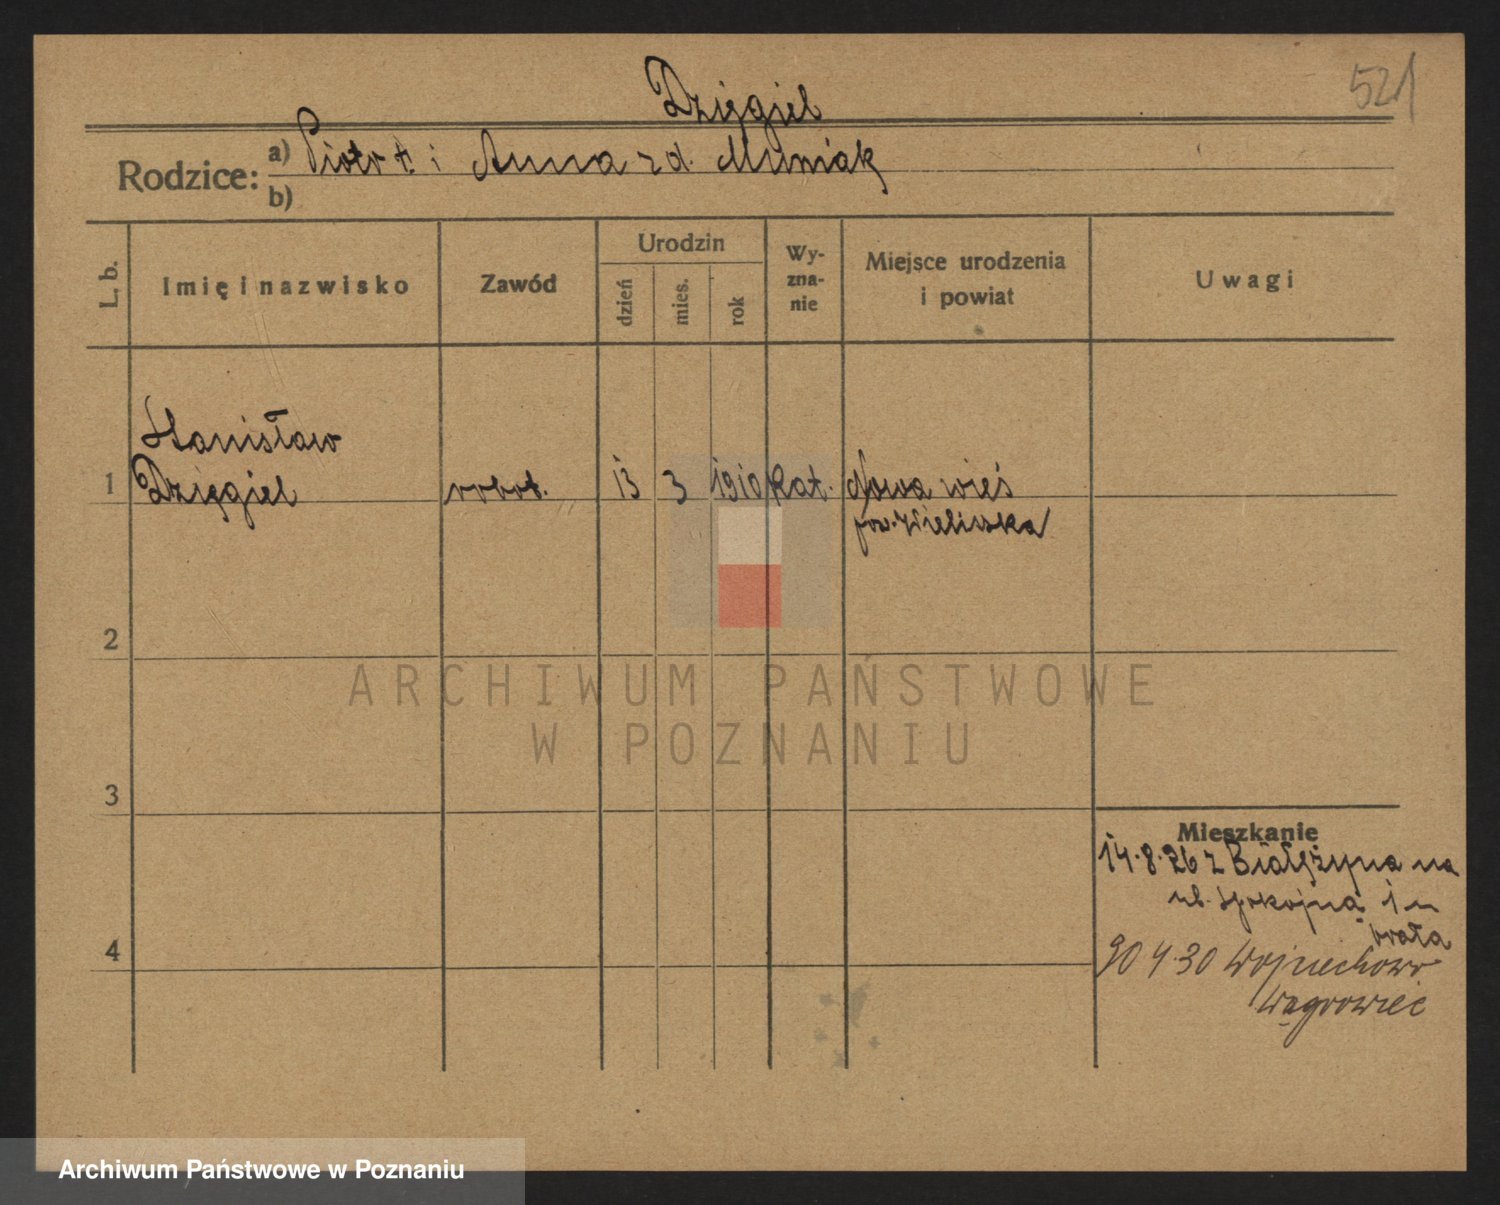 521
Dzięgiel
Rodzice:
a) Piotr † i Anna zd. Muniak
b)
L. b.
Imię i nazwisko
Zawód
Urodzin
dzień
mies.
rok
Wy-
zna-
nie
Miejsce urodzenia
i powiat
Uwagi
Stanisław
1 Dzięgiel robot. 13 3 1910 kat. Nowa wieś
pow. Wieliczka
2
3
4
Mieszkanie
14.8.26 z Białężyna na
ul. Spokojna 1 u
brata
30 4.30 Wojciechowo
Wągrowiec
ARCHIWUM PAŃSTWOWE
W POZNANIU
Archiwum Państwowe w Poznaniu